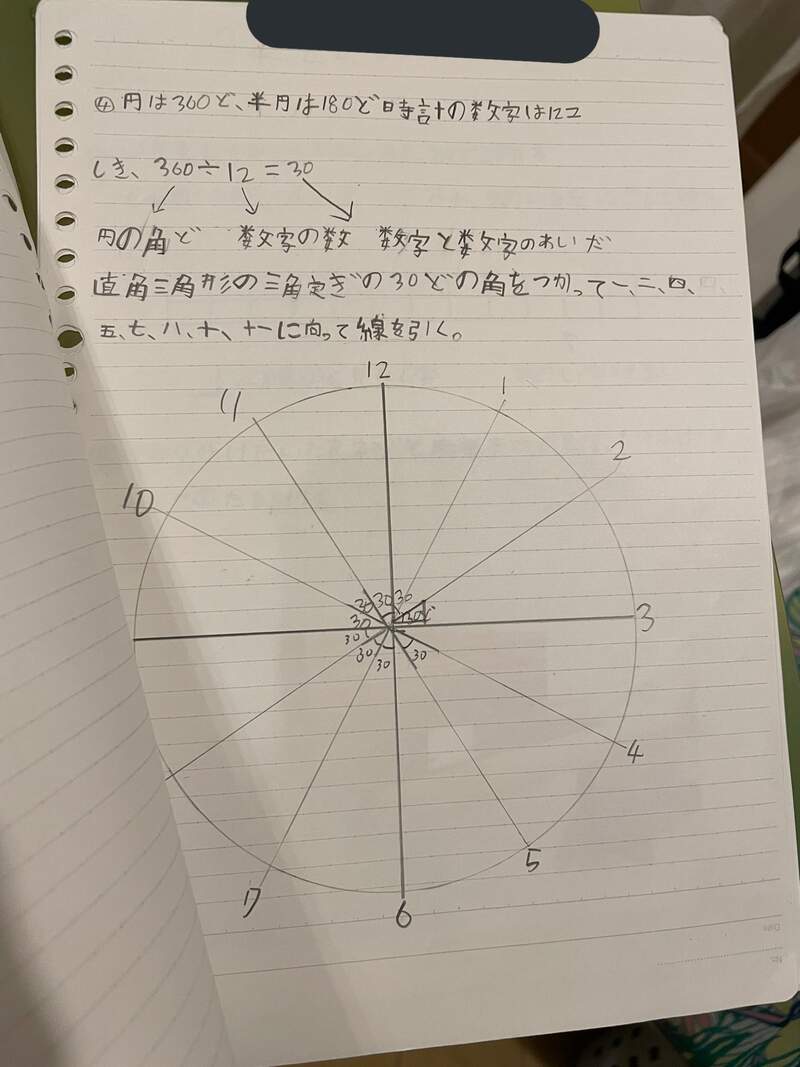 ④円は360ど、半円は180ど時計の数字は12コ
しき、360÷12=30
円の角ど 数字の数 数字と数字のあいだ
直角三角形の三角定ぎの30どの角をつかって一、二、四、
五、七、八、十、十一に向って線を引く。
12
11
1
10
2
30 30 30
30 30ど
3
30
30 30 30
4
5
7
6